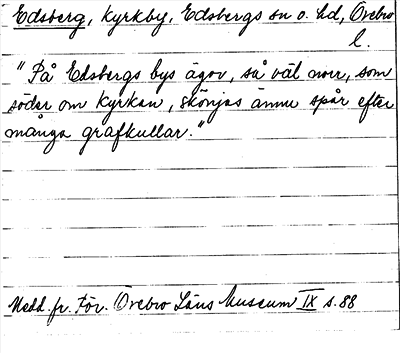 Edsberg, kyrkby, Edsbergs sn o. hd, Örebro
l.
"På Edsbergs bys ägor, så väl norr, som
söder om kyrkan, skönjas ännu spår efter
många grafkullar."
Medd. fr. För. Örebro Läns Museum IX s. 88